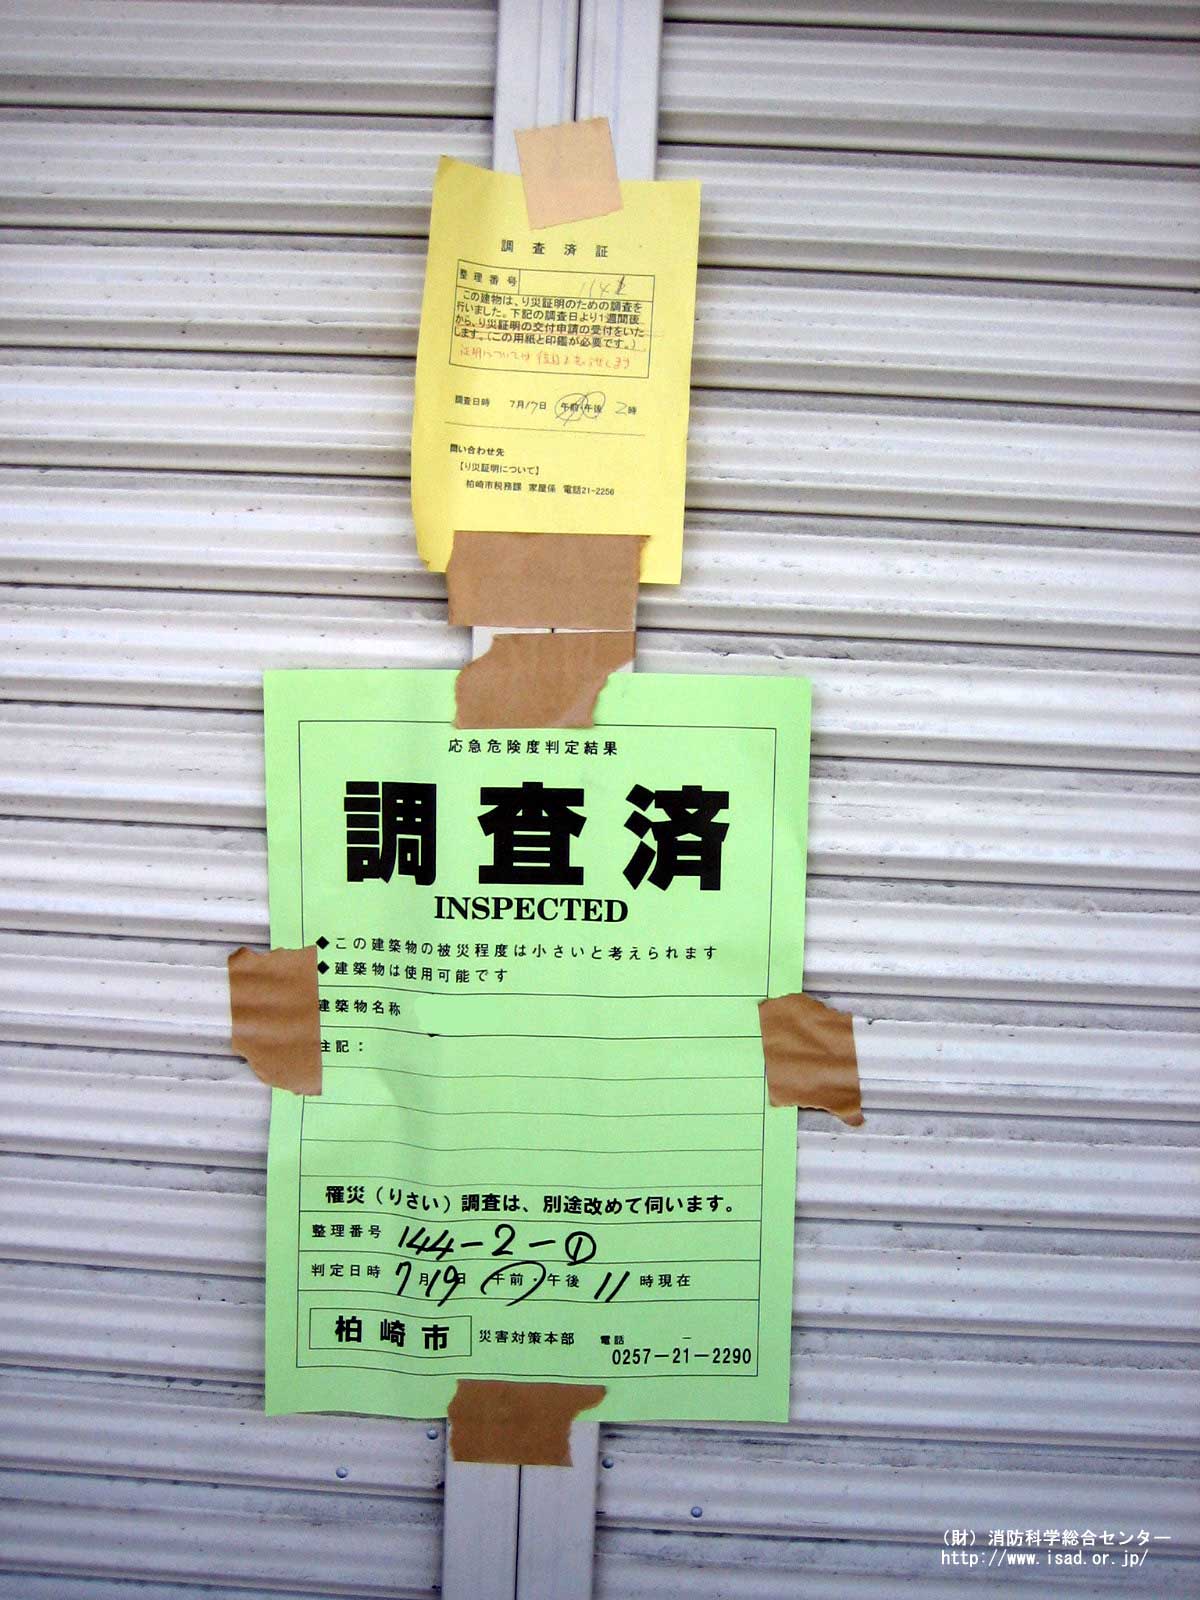 調査済証
整理番号
この建物は、り災証明のための調査を
行いました。下記の調査日より1週間後
から、り災証明の交付申請の受付をいた
します。(この用紙と印鑑が必要です。)
証明については
調査日時 7月17日 午前・午後 2時
問い合わせ先
【り災証明について】
柏崎市税務課 家屋係 電話21-2256
応急危険度判定結果
調査済
INSPECTED
◆この建築物の被災程度は小さいと考えられます
◆建築物は使用可能です
建築物名称
注記：
罹災（りさい）調査は、別途改めて伺います。
整理番号 144-2-①
判定日時 7月19日 午前・午後 11時現在
柏崎市 災害対策本部 電話
0257-21-2290
(財)消防科学総合センター
http://www.isad.or.jp/